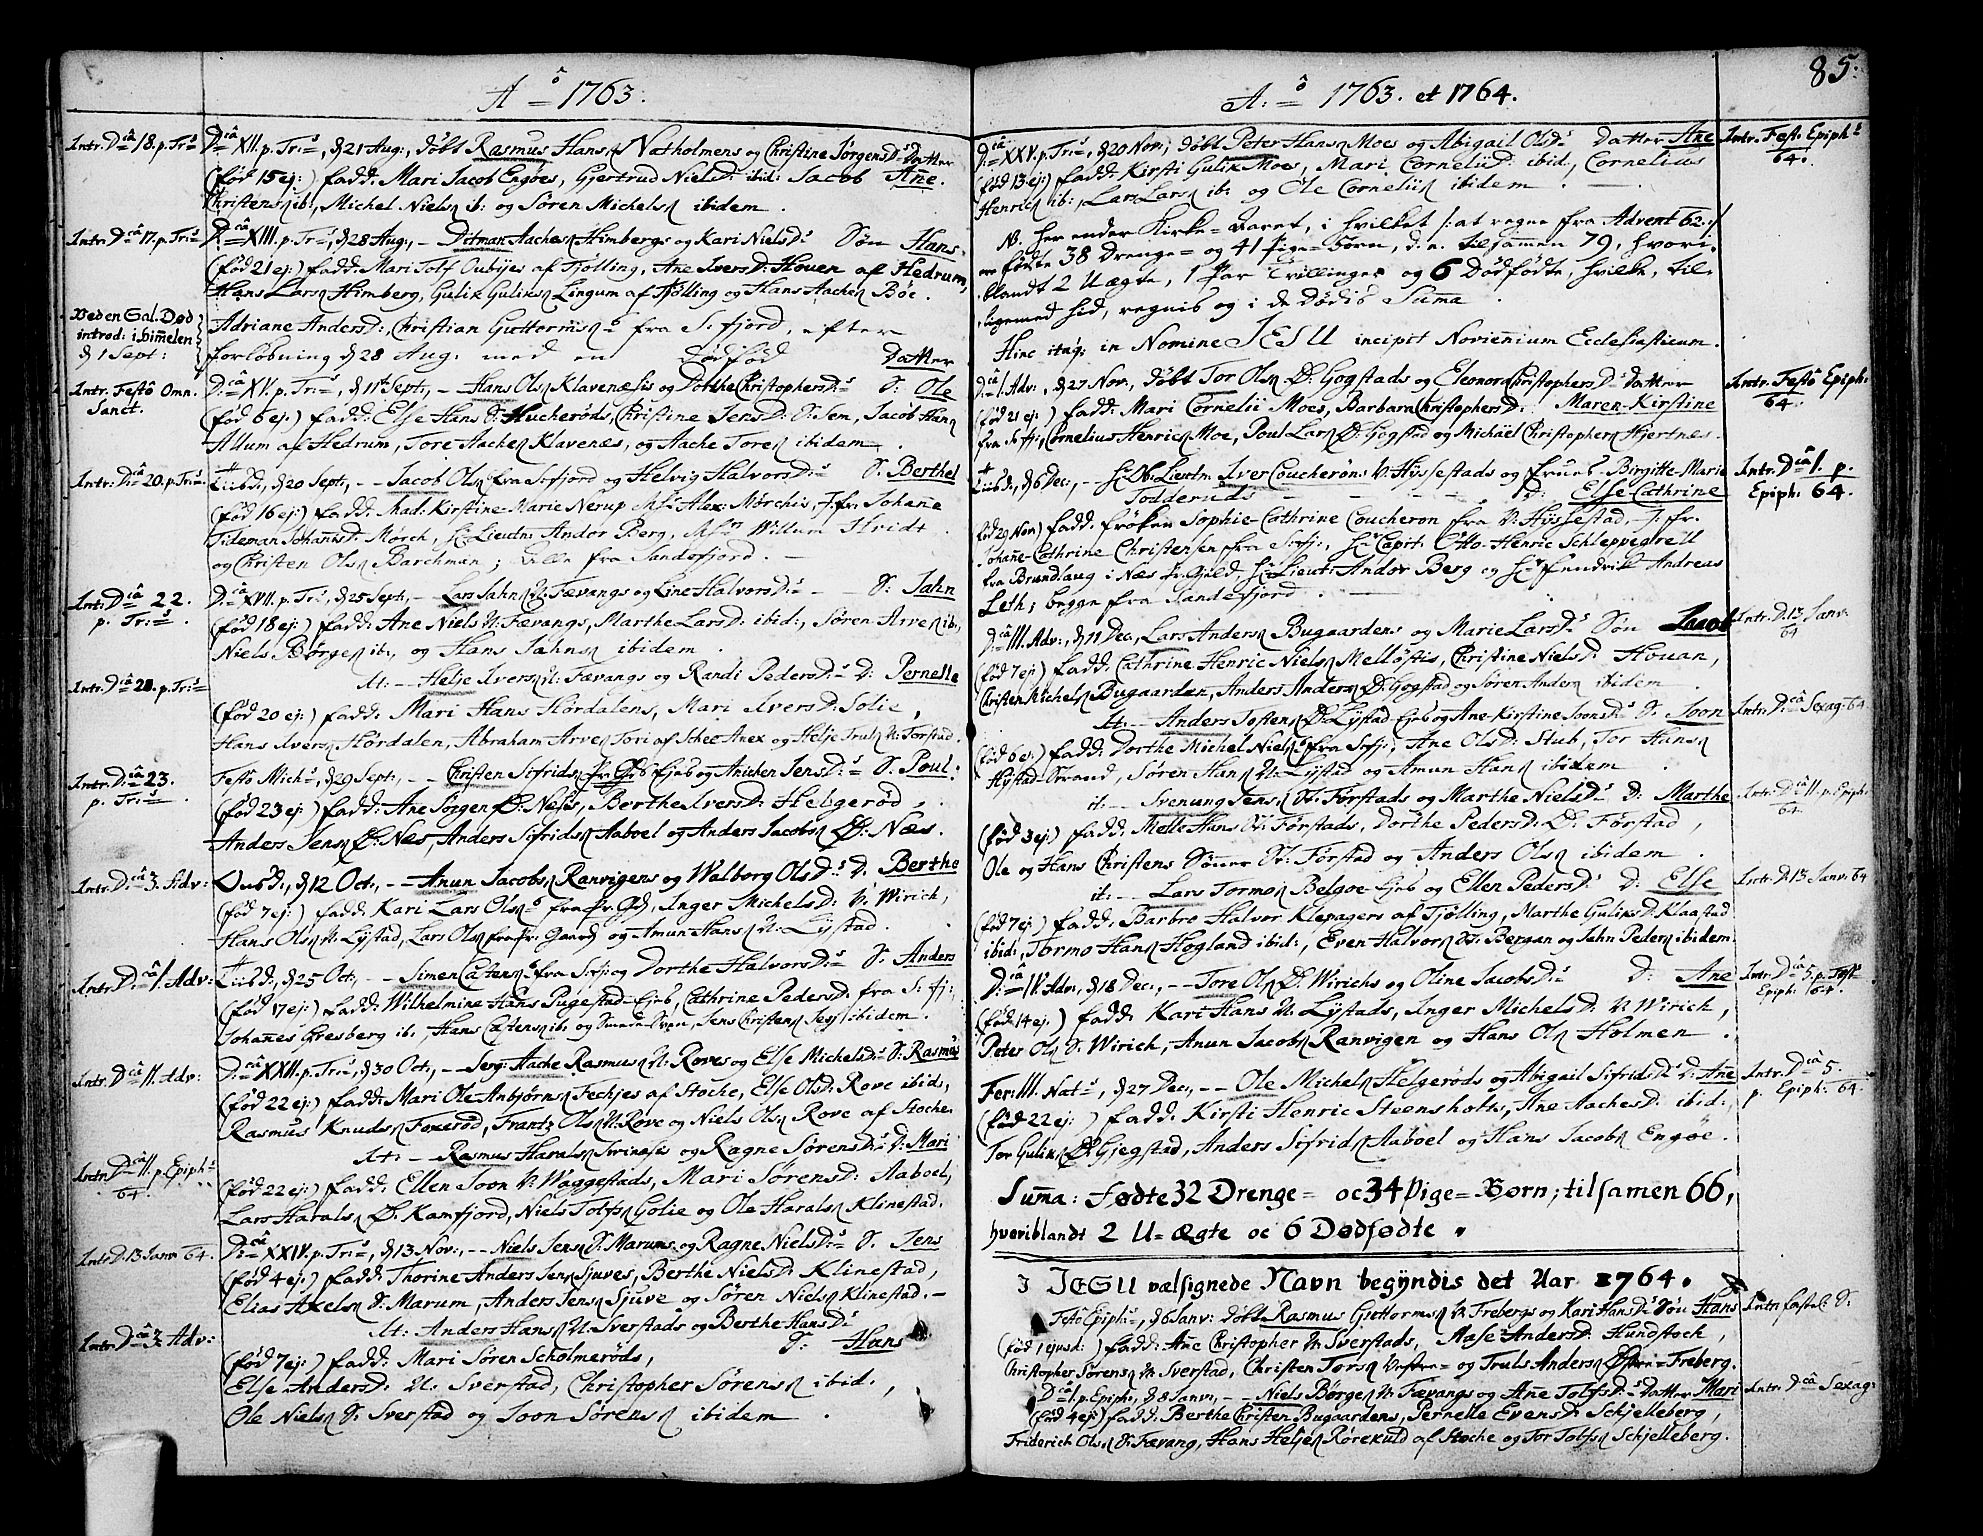 Aô 1763.
Intr: Dcâ 18. p. Trs
Dcâ XII. p. Trs, d 21 Aug:, døbt Rasmus Hansn Natholmens og Christine JørgensDs Datter
(fød 15 ej:) fadd: Mari Jacob Engøes, Gjertrud NielsD: ibid: Jacob Ane.
Christensn ib:, Michel Nielsn ib: og Søren Michelsn ibidem.
Intr: Dcâ 17. p. Trs
Dcâ XIII. p. Trs, d 28 Aug:, - Ditman Aachesn Himbergs og Kari NielsDs Søn Hans.
(fød 21 ej:) fadd: Mari Tolf Oubyes af Tjølling, Ane IversD: Houen af Hedrum,
Hans Larsn Himberg, Gulik Guliksn Lingum af Tjølling og Hans Aachesn Bøe.
Ved en Sal. Død
introd: i himelen
d 1 Sept:
Adriane AndersD:, Christian Guttormsns fra S:fjord, efter
forløbning d 28 Aug. med en dødfød Datter
Intr: Festô Omn.
Sanct.
Dcâ XV. p. Trs, d 11te Sept:, - Hans Olsn Klavenæsis og Dorthe ChristophersDs S: Ole
(fød 6 ej:) fadd: Else Hans S: Hucherøds, Christine JensD: S:Sem, Jacob Hansn
Allum af Hedrum, Tore Aachesn Klavenæs, og Aache Toresn ibidem.
Intr: Dcâ 20. p. Trs
‡ usd:, d 20 Sept:, - - Jacob Olsn fra S:fjord og Helvig HalvorsDs S: Berthel
(fød 16 ej:) fadd: Mad: Kirstine-Marie Nerup Alex: Mørchis, J:fr: Johane
Tideman JohannsD: Mørch, Hr Lieutn: Andor Berg, Willum Hvidt
og Christen Olsn Barchman; alle fra Sandefjord.
Intr: Dcâ 22.
p. Trs
Dcâ XVII. p. Trs, d 25 Sept:, - Lars Jahnsn N: Fævangs og Line HalvorsDs S: Jahn
(fød 18 ej:) fadd: Ane Niels N: Fævangs, Marthe LarsD: ibid:, Søren Arvesn ib:,
Niels Børgesn ib:, og Hans Jahnsn ibidem.
Intr: Dcâ 20. p. Trs
It: - Helje Iversn N: Fævangs og Randi PedersDs D: Pernelle
(fød 20 ej:) fadd: Mari Hans Hørdalens, Mari IversD: Solie,
Hans Iversn Hørdalen, Abraham Arvesn Tori af Schee Anex og Helje Trulsn N: Torstad.
Intr: Dcâ 23.
p. Trs
Festô Michs, d 29 Sept:, - - Christen Sifridsn Pr: Gds Ejeb og Anichen JensDs S: Poul:
(fød 23 ej:) fadd: Ane Jørgen Ø: Nesis, Berthe IversD: Helgerød,
Anders Jensn Ø: Næs, Anders Sifridsn Aaboel og Anders Jacobsn Ø: Næs.
Intr: Dcâ 3. Adv:
Dusd:, d 12 Oct:, - - Anun Jacobsn Ranvigens og Walborg OlsDs D: Berthe
(fød 7 ej:) fadd: Kari Lars Olsns fra Pr: Gd, Inger MichelsD: N: Wirich,
Hans Olsn N: Lystad, Lars Olsn fra Pr: Gaard og Amun Hansn N: Lystad.
Intr: Dcâ 1. Adv:
‡ usd:, d 25 Oct:, - - Simen Catensns fra S:fj: og Dorthe HalvorsDs S: Anders
(fød 17 ej:) fadd: Wilhelmine Hans Pugestad-Ejeb, Cathrine PedersD: fra S: fj:,
Johannes Gresberg ib:, Hans Catensn ib: og Svend Svensn, Jens Christensn Jesj ibidem.
Intr: Dcâ 11. Adv:
Dcâ XXII. p. Trs, d 30 Oct:, - - Serg: Aache Rasmusn N: Roves og Else MichelsDs S: Rasmus
(fød 22 ej:) fadd: Mari Ole Anbjørnsn Fechjes af Stoche, Else OlsD: Rove ibid:,
Rasmus Knudsn Foxerød, Frantz Olsn N: Rove og Niels Olsn Rove af Stoche.
Intr: Dcâ 11. p. Epiphs
64.
It: - Rasmus Haralsn Irvinasis og Ragne SørensDs D: Mari
(fød 22 ej:) fadd: Ellen Joon N: Waggestads, Mari SørensD: Aaboel,
Lars Haralsn Ø: Kamfjord, Niels Tolfsn Golie og Ole Haralsn Klinestad.
Intr: D: 13 Janv: 64.
Dcâ XXIV. p. Trs, d 13 Nov:, - - Niels Jensn S: Marums og Ragne NielsDs S. Jens
(fød 4 ej:) fadd: Thorine Anders Jensn Sjuves, Berthe NielsD: Klinestad,
Elias Axelsn S: Marum, Anders Jensn Sjuve og Søren Nielsn Klinestad. -
Intr: Dcâ 3. Adv:
It: - Anders Hansn N: Sverstads og Berthe HansDs S: Hans
(fød 7 ej:) fadd: Mari Søren Scholmerøds,
Else AndersD: N: Sverstad, Christopher Sørensn ibid:,
Ole Nielsn S: Sverstad og Joon Sørensn ibidem.
85.
A:ô 1763. et 1764.
Dcâ XXV. p. Trs, d 20 Nov:, døbt Peter Hansn Moes og Abigail OlsDs Datter Ane
Intr: Fest: Epiphs
64.
(fød 13 ej:) fadd: Kirsti Gulik Moes, Mari CorneliiD: ibid:, Cornelius
Henricsn ib:, Lars Larsn ib: og Ole Corneliisn ibidem.
NB. her ender Kirke-Aaret, i hvilket /: at regne fra Advent 62:/
ere fødte 38 Drenge= og 41 Pige=Børn, d. e. tilsamen 79, hvori-
blandt 2 Uægte, 1 Par Tvillinger og 6 Dødfødte, hvilke, til-
ligemed hid, regnis og i de dødis Summa.
Hinc itaq: in Nomine JESU incipit Novienium Ecclesiasticum.
Dcâ 1. Adv:, d 27 Nov, døbt Tor Olsn Ø: Gogstads og Eleonora ChristophersDs Datter
Intr: Festô Epiph:
64.
(fød 21 ej:) fadd: Mari Cornelii Moes, Barbara ChristophersD: Maren-Kirstine
fra S:fj:, Cornelius Henricsn Moe, Poul Larsn Ø: Gogstad og Michael Christophersn Hjertnæs.
‡ usd:, d 6 Dec:, - Hr Ob: Lieutn: Iver Coucherons N: Hyssestads og Frues Birgitte-Marie
Todderuds - - - - D: Else Cathrine
Intr: Dcâ 1. p.
Epiph: 64.
(fød 29 Nov) fadd: Frøken Sophie-Cathrine Coucheron fra N: Hyssestad, J: fr:
Johane-Cathrine Christensen fra S:fj:, Hr Capit: Otto-Henric Schleppegrell
fra Brundlaug i Næs Pr: Gjeld, Hr Lieut: Andor Berg og Hr Fendrich Andreas
Leth; begge fra Sandefjord.
Dcâ III. Adv:, d 11 Dec, Lars Andersn Bugaardens og Marie LarsDs Søn Jacob
Intr: D: 13 Janv:
64
(fød 7 ej:) fadd: Cathrine Henric Nielsn Mellôstis, Christine NielsD: Houan,
Christen Michelsn Bugaarden, Anders Andersn Ø: Gogstad og Søren Andersn ibidem.
It: - Anders Jostensn Ø: Lystad-Ejeb og Ane-Kirstine JoonsDs S: Joon
Intr: Dcâ Sexag: 64
(fød 6 ej:) fadd: Dorthe Michel Nielsns fra S:fj:, Ane OlsD: Stub, Tor Hansn
Hystad-Strand, Søren Hansn N: Lystad og Amun Hansn ibidem.
it: - - Svenung Jensn N: Forstads og Marthe NielsDs D: Marthe
Intr: Dcâ 11. p. Epiph:
64.
(fød 3 ej:) fadd: Melle Hans N: Førstads, Dorthe PedersD: Ø: Førstad,
Ole og Hans Christens Sønner N: Førstad og Anders Olsn ibidem.
it: - - Lars Tormosn Belgøe-Ejeb og Ellen PedersDs D: Else
Intr: D: 13 Janv: 64
(fød 7 ej:) fadd: Barbro Halvor Klepagers af Tjølling, Marthe GuliksD: Klaastad
ibid:, Tormo Hansn Hogland ibid:, Even Halvorsn N: Bergan og Jahn Pedersn ibidem
Dcâ IV. Adv, d 18 Dec:, - - Tore Olsn Ø: Wirichs og Oline JacobsDs D: Ane
Intr: Dcâ 5. p. Fest:
Epiph: 64.
(fød 14 ej:) fadd: Kari Hans N: Lystads, Inger MichelsD: N: Wirich,
Peter Olsn S: Wirich, Anun Jacobsn Ranvigen og Hans Olsn Holmen.
Fer: III. Nats, d 27 Dec:, - - Ole Michelsn Helgerøds og Abigail SifridsDs D: Ane
Intr: Dcâ 5.
p. Epiph: 64.
(fød 22 ej:) fadd: Kirsti Henric Steensholts, Ane AachesD: ibid:,
Tor Guliksn Ø: Gjegstad, Anders Sifridsn Aaboel og Hans Jacobsn Engøe.
Suma: Fødte 32 Drenge= oc 34 Pige=Børn; tilsamen 66,
hveriblandt 2 U=ægte oc 6 Dødfødte.
I JESU velsignede Navn begyndis det Aar 1764.
Festô Epiphs, d 6 Janv: døbt Rasmus Guttormsn N: Frebergs og Kari HansDs Søn Hans
Intr: fastel: S:
(fød 1 ejusd:) fadd: Ane Christopher N: Sverstads, Aase AndersD: Hundstoch,
Christopher Sørensn N: Sverstad, Christen Torsn Vestre= og Truls Andersn Østre=Freberg.
Dcâ 1. p. Epiph:, d 8 Janv:, - - Niels Børgesn N: Fævangs og Ane TolfsDs Datter Mari
Intr: Dcâ Sexag:
(fød 4 ej:) fadd: Berthe Christen Bugaardens, Pernelle EvensD: Schjelleberg,
Friderich Olsn S: Fævang, Hans Heljesn Rørekuld af Stoche og Tor Tolfsn Schjelleberg.